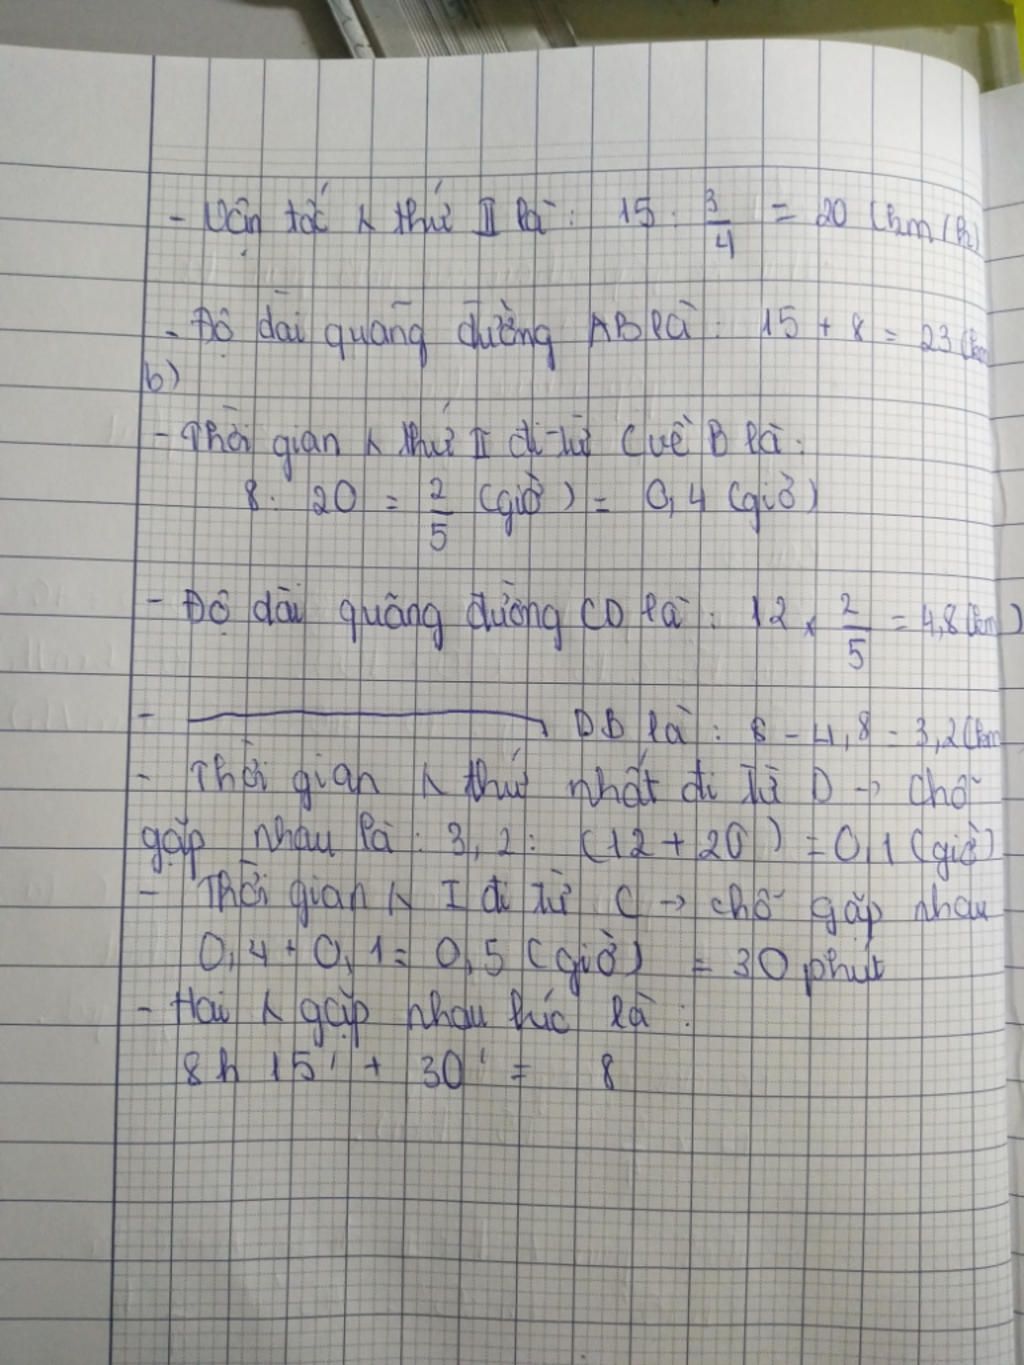 - Vận tốc λ thứ II là : 15 : 3/4 = 20 (km/h)
- Độ dài quãng đường AB là : 15 + 8 = 23 (km
b)
- Thời gian λ thứ II đi từ C về B là :
8 : 20 = 2/5 (giờ) = 0,4 (giờ)
- Độ dài quãng đường CD là : 12 x 2/5 = 4,8 (km)
- DB là : 8 - 4,8 = 3,2 (km
- Thời gian λ thứ nhất đi từ D → chỗ
gặp nhau là : 3,2 : (12 + 20) = 0,1 (giờ)
- Thời gian λ I đi từ C → chỗ gặp nhau
0,4 + 0,1 = 0,5 (giờ) = 30 phút
- Hai λ gặp nhau lúc là :
8h 15' + 30' = 8